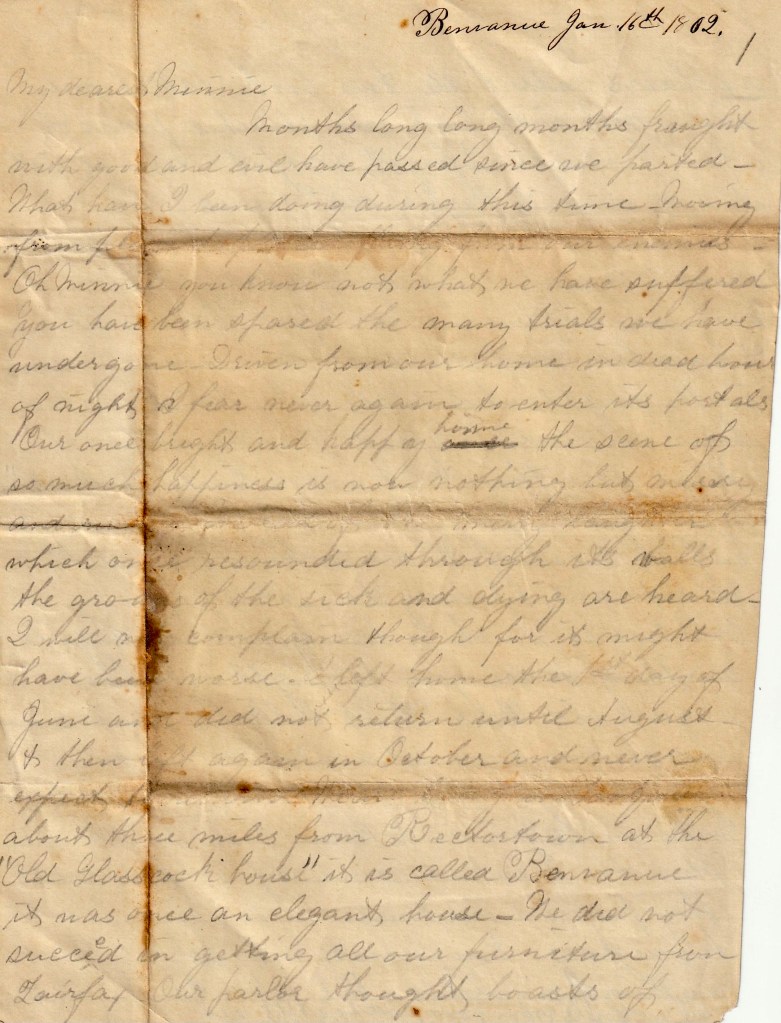 Benvanue Jan. 16th 1862.
1
My dearest Minnie
Months long long months fraught
with good and evil have passed since we parted –
What have I been doing during this time – Moving
from our enemies –
Oh Minnie you know not what we have suffered
You have been spared the many trials we have
undergone – Driven from our home in dead hour
of night, I fear never again to enter its portals
Our once bright and happy home the scene of
so much happiness is now nothing but misery
and laughter
which once resounded through its walls
the groans of the sick and dying are heard –
I will not complain though for it might
have been worse. I left home the 1st day of
June and did not return until August –
& then left again in October and never
expect
about three miles from Rectortown at the
"Old Glasscock house" it is called Benvanue
it was once an elegant house – We did not
succeed in getting all our furniture from
Fairfax Our parlor thought boasts of